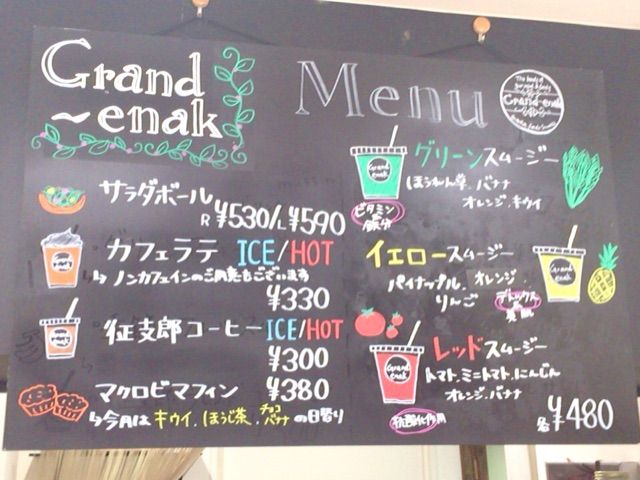 Grand
~enak
Menu
Grand-enak
サラダボール
R ¥530/L ¥590
カフェラテ ICE/HOT
↳ノンカフェインのご用意もございます
¥330
征支郎コーヒー ICE/HOT
¥300
マクロビマフィン ¥380
↳今月は キウイ、ほうじ茶、チョコバナナ の日替り
グリーンスムージー
ほうれん草、バナナ
オレンジ、キウイ
ビタミン
鉄分
イエロースムージー
パイナップル、オレンジ
りんご
デトックス
美肌
レッドスムージー
トマト、ミニトマト、にんじん
オレンジ、バナナ
抗酸化作用
各¥480
Grand
enak
Grand
enak
Grand
enak